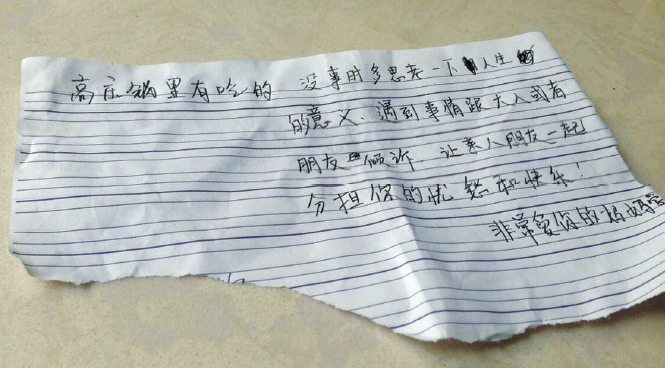 高压锅里有吃的
没事时多思考一下人生
的意义、遇到事情跟大人或者
朋友倾诉、让亲人朋友一起
分担你的忧愁和快乐!
非常爱你的妈妈